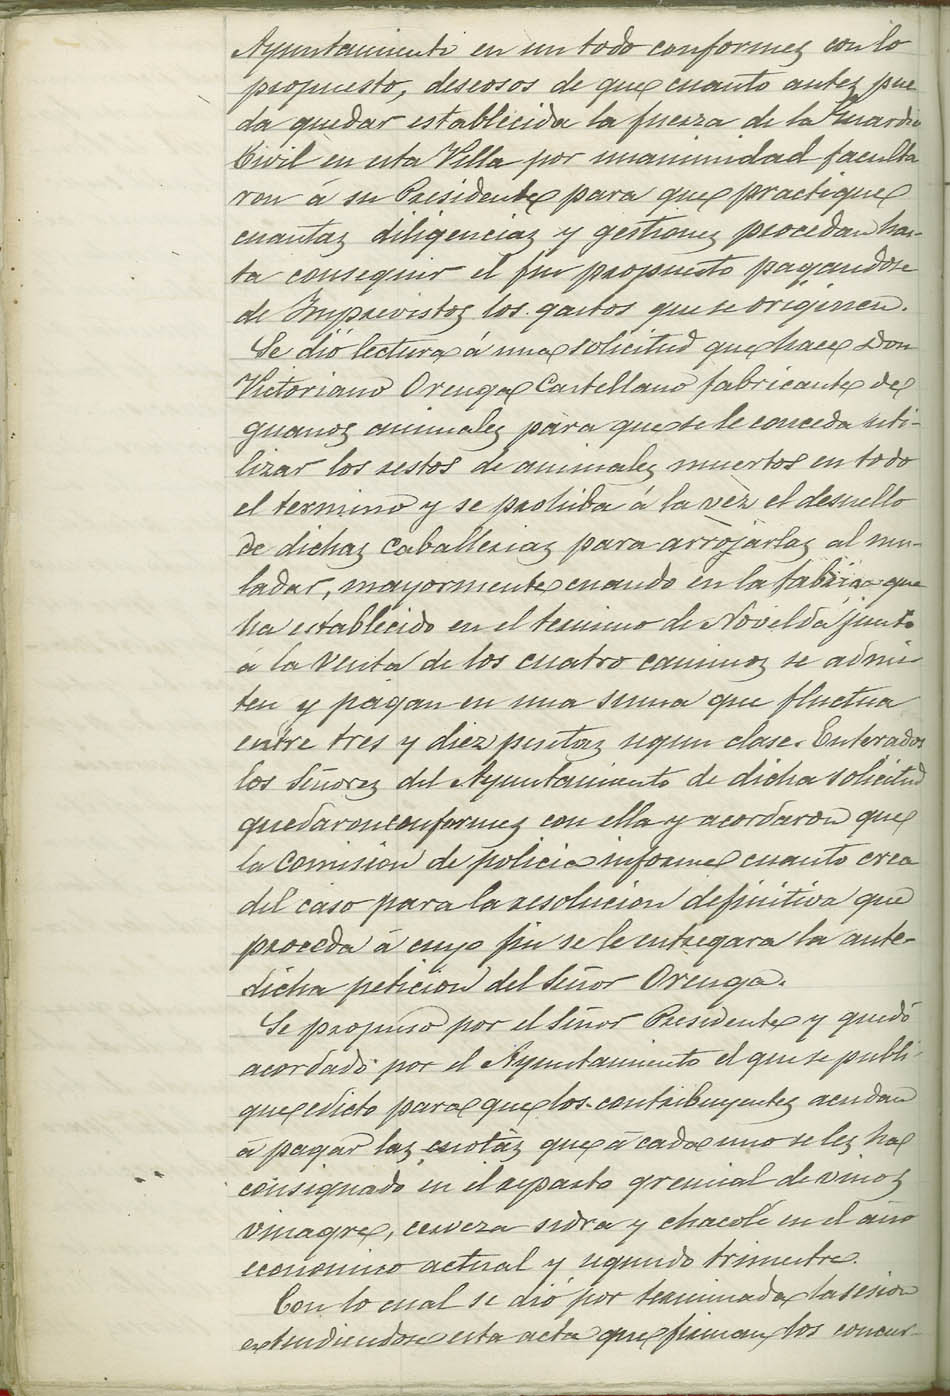 Ayuntamiento en un todo conformes con lo
propuesto, deseosos de que cuanto antes pue
da quedar establecida la fuerza de la Guardia
Civil en esta Villa por unanimidad faculta
ron á su Presidente para que practique
cuantas diligencias y gestiones procedan has-
ta conseguir el fin propuesto pagandose
de Imprevistos los gastos que se originen.
Se dió lectura á una solicitud que hace Don
Victoriano Orenga Castellano fabricante de
guanos animales para que se le conceda uti-
lizar los restos de animales muertos en todo
el termino y se prohiba á la vez el desuello
de dichas caballerias para arrojarlas al mu-
ladar, mayormente cuando en la fabrica que
ha establecido en el termino de Novelda junto
á la Venta de los cuatro caminos se admi
ten y pagan en una suma que fluctua
entre tres y diez pesetas segun clase. Enterados
los Señores del Ayuntamiento de dicha solicitud
quedaron conformes con ella y acordaron que
la Comision de policia informe cuanto crea
del caso para la resolucion definitiva que
proceda á cuyo fin se le entregara la ante-
dicha peticion del Señor Orenga.
Se propuso por el Señor Presidente y quedó
acordado por el Ayuntamiento el que se publi-
que edicto para que los contribuyentes acudan
á pagar las cuotas que á cada uno se les ha
consignado en el reparto gremial de vinos
vinagre, cerveza sidra y chacolí en el año
economico actual y segundo trimestre.
Con lo cual se dió por terminada la sesion
extendiendose esta acta que firman los concur-